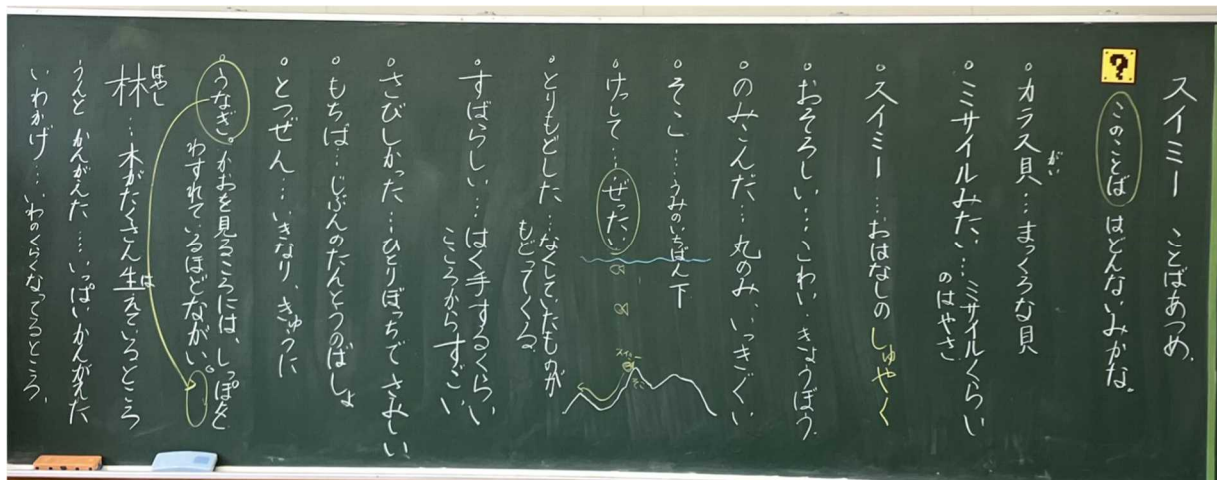 スイミー ことばあつめ。
?
このことばはどんないみかな。
カラス貝…まっくろな貝
がい
ミサイルみたい…ミサイルくらい
のはやさ
スイミー…おはなしのしゅやく
おそろしい…こわい・きょうぼう
のみこんだ…丸のみ、いっきぐい
そこ…うみのいちばん下
けっして…ぜったい
スイミー
そこ
とりもどした…なくしていたものが
もどってくる
すばらしい…はく手するくらい
こころからすごい
さびしかった…ひとりぼっちでさみしい
もちば…じぶんのたんとうのばしょ
とつぜん…いきなり、きゅうに
うなぎ。かおを見るころには、しっぽを
わすれているほどながい。
林…木がたくさん生えているところ
はやし
は
うんとかんがえた…いっぱいかんがえた
いわかげ…いわのくらくなってるところ、